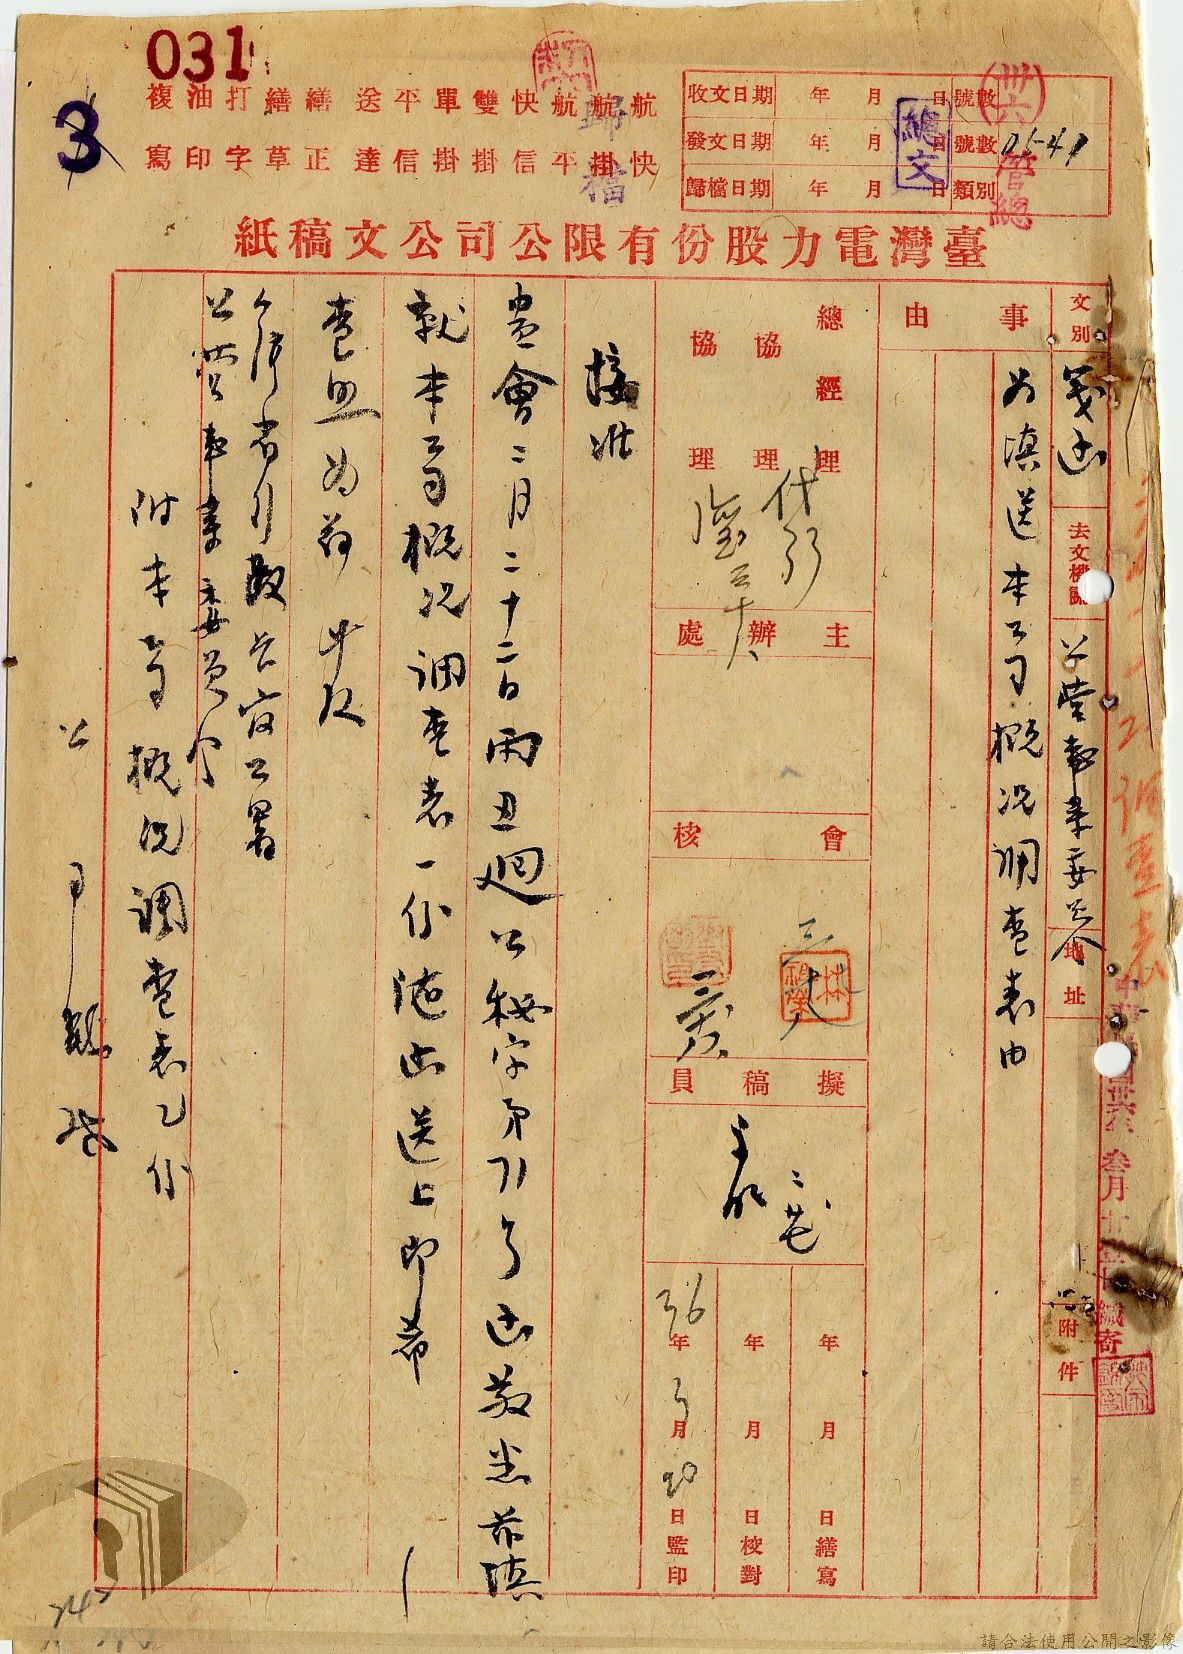 031
3
歸檔
航快 航掛 航平 快信 雙掛 單掛 平信 送達 繕正 繕草 打字 油印 複寫
收文日期 年 月 日 號數
發文日期 年 月 日 號數
歸檔日期 年 月 日 類別
(卅六)
管總
總文
臺灣電力股份有限公司公文稿紙
文別 箋函
去文機關 公營事業委員會
地址
附件
事由
為填送本公司概況調查表由
總經理
協理
協理
主辦處
會核
擬稿員
年 月 日繕寫
年 月 日校對
36年3月20日監印
接准
貴會二月二十二日丙丑迴公秘字第71號函敬悉茲填
就本公司概況調查表一份隨函送上即希
查照為荷 此致
臺灣省行政長官公署
公營事業委員會
附本公司概況調查表乙份
公司 啟
林
緘寄
請合法使用公開之影像